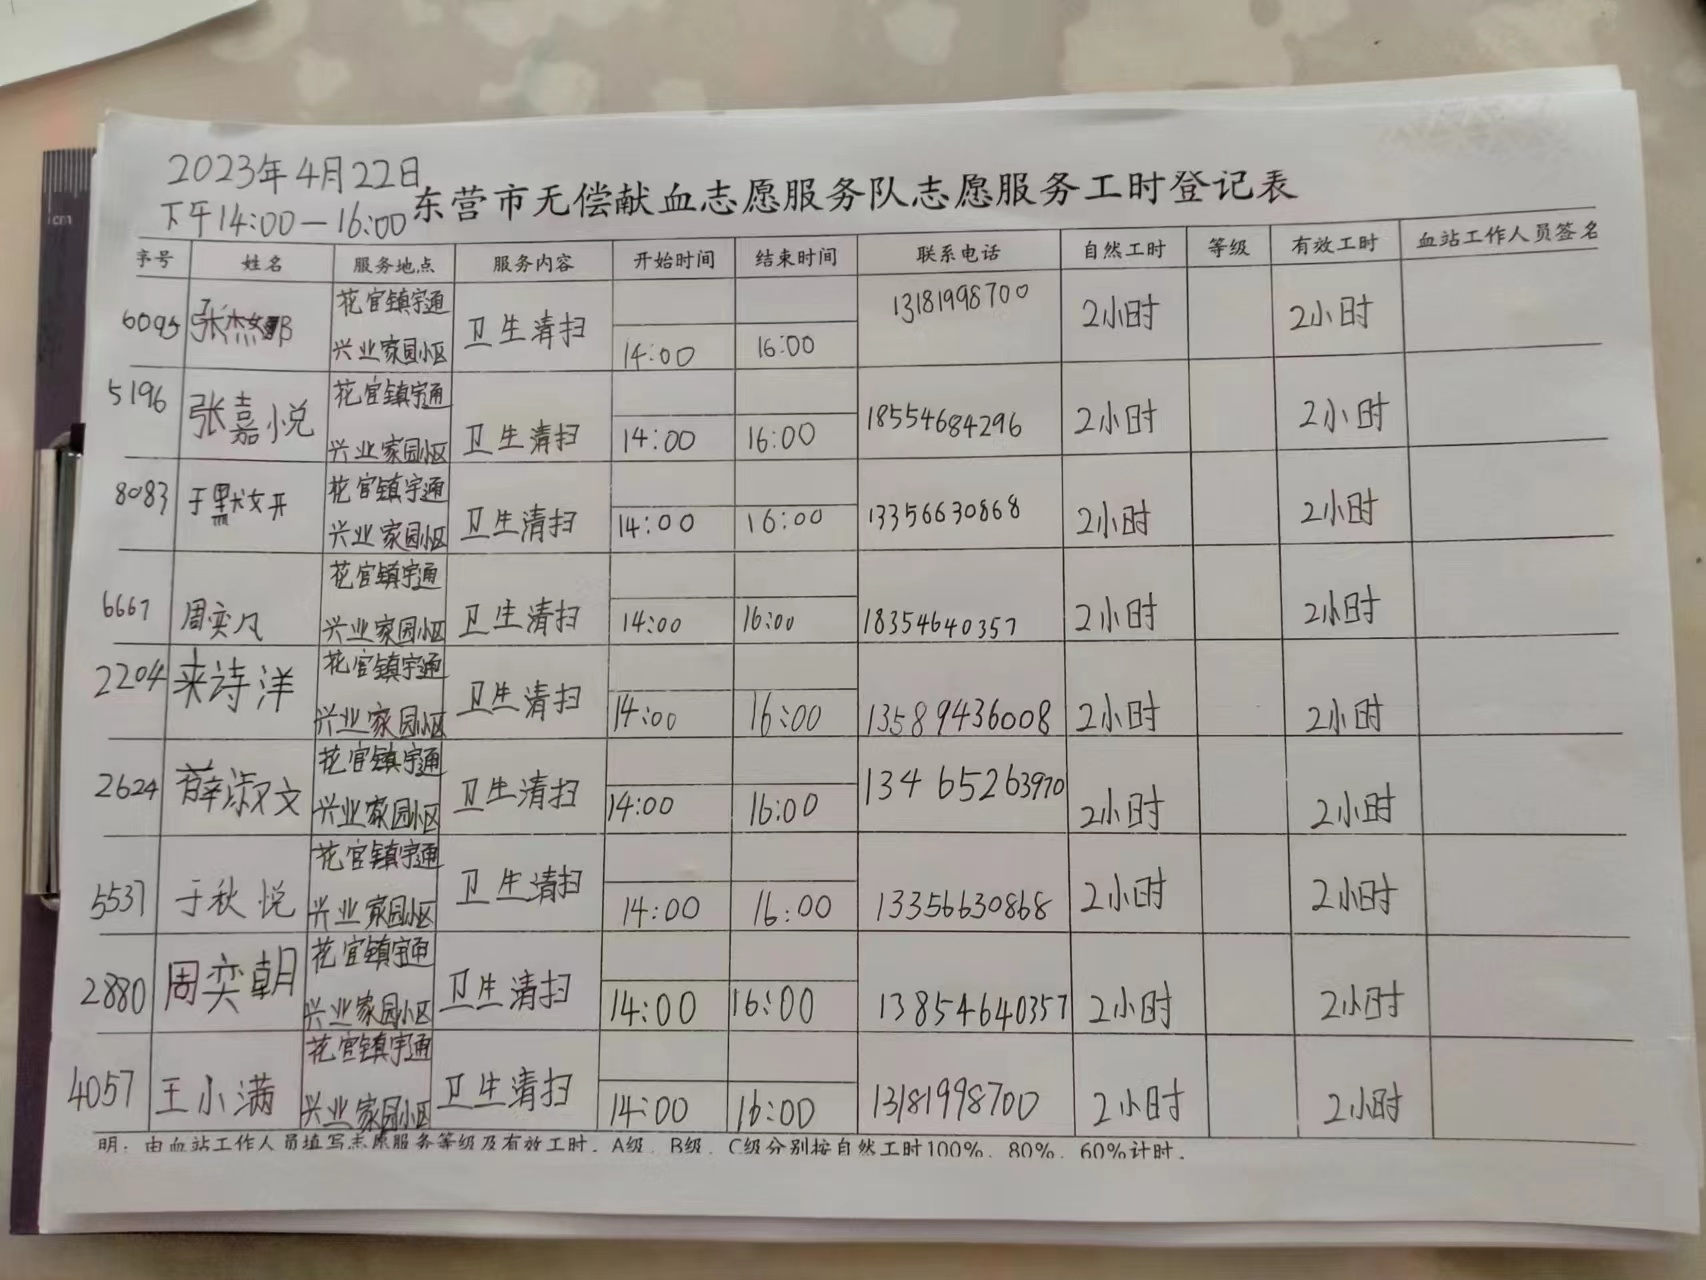 2023年4月22日
下午14:00—16:00
东营市无偿献血志愿服务队志愿服务工时登记表
序号 姓名 服务地点 服务内容 开始时间 结束时间 联系电话 自然工时 等级 有效工时 血站工作人员签名
6095 张杰娜 花官镇宇通兴业家园小区 卫生清扫 14:00 16:00 13181998700 2小时 2小时
5196 张嘉悦 花官镇宇通兴业家园小区 卫生清扫 14:00 16:00 18554684296 2小时 2小时
8083 于默妍 花官镇宇通兴业家园小区 卫生清扫 14:00 16:00 13356630868 2小时 2小时
6667 周奕凡 花官镇宇通兴业家园小区 卫生清扫 14:00 16:00 18354640357 2小时 2小时
2204 来诗洋 花官镇宇通兴业家园小区 卫生清扫 14:00 16:00 13589436008 2小时 2小时
2624 薛淑文 花官镇宇通兴业家园小区 卫生清扫 14:00 16:00 13465263970 2小时 2小时
5537 于秋悦 花官镇宇通兴业家园小区 卫生清扫 14:00 16:00 13356630868 2小时 2小时
2880 周奕朝 花官镇宇通兴业家园小区 卫生清扫 14:00 16:00 13854640357 2小时 2小时
4057 王小满 花官镇宇通兴业家园小区 卫生清扫 14:00 16:00 13181998700 2小时 2小时
明：由血站工作人员填写志愿服务等级及有效工时。A级、B级、C级分别按自然工时100%、80%、60%计时。
cm